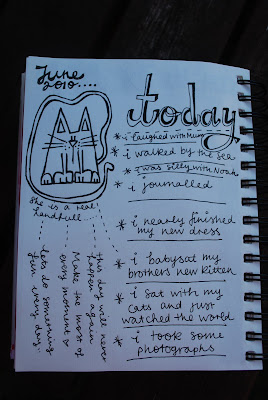 June
2010....
today
* i laughed with Mum
* i walked by the sea
* i was silly with Noah
* i journalled
* i nearly finished
my new dress
* i babysat my
brothers new kitten
* i sat with my
cats and just
watched the world
* i took some
photographs
She is a real
handfull....
this day will never
happen again
Make the most of
every moment &
lets do something
fun every day.